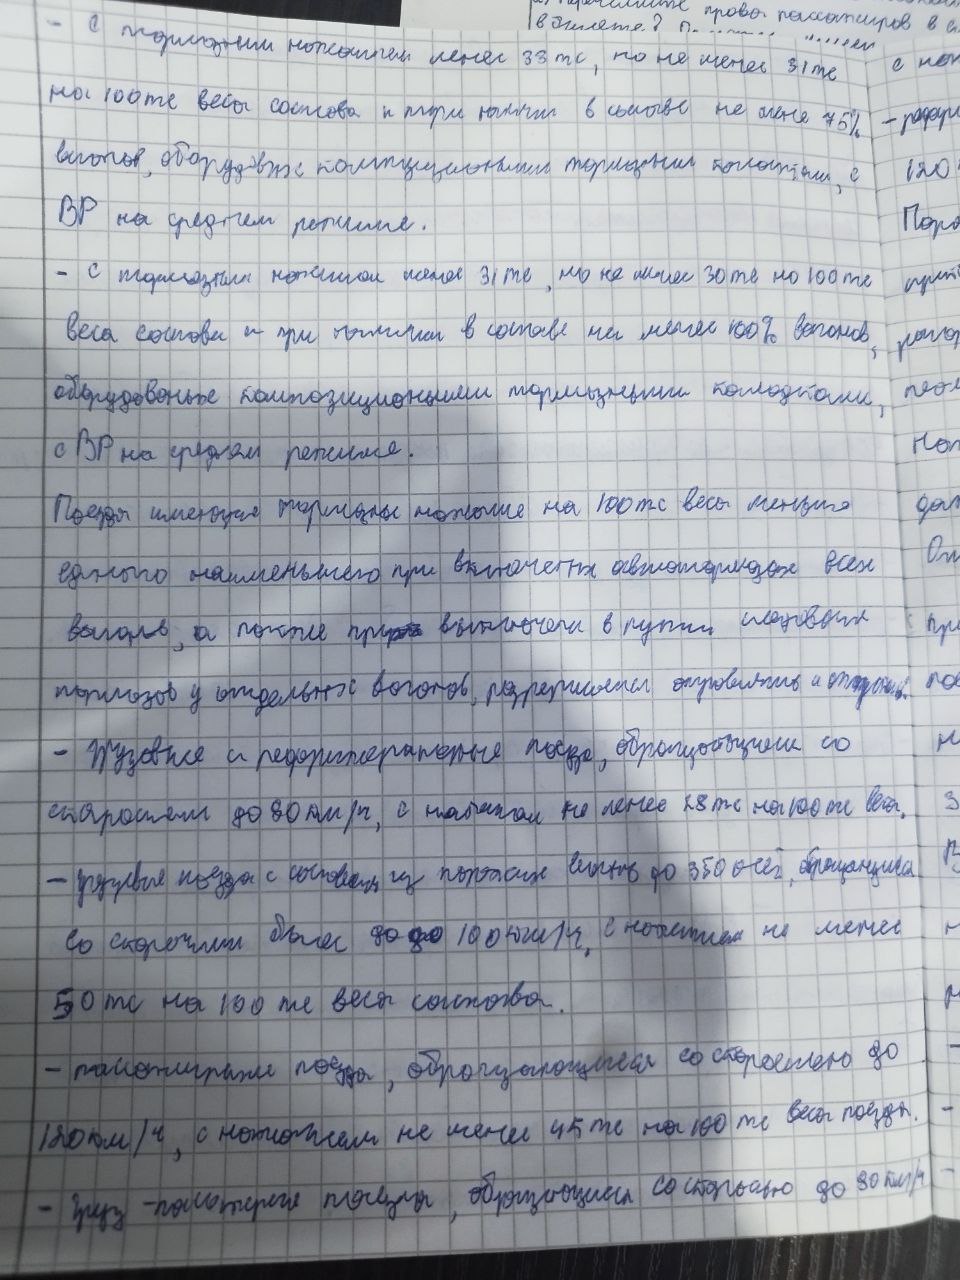 Перечислите права пассажиров в
в билете?
- с тормозным нажатием менее 33 тс, но не менее 31 тс
на 100 тс веса состава и при наличии в составе не менее 75%
вагонов, оборудов композиционными тормозными колодками, с
ВР на среднем режиме.
- с тормозным нажатием менее 31 тс, но не менее 30 тс на 100 тс
веса состава и при наличии в составе не менее 100% вагонов,
оборудованных композиционными тормозными колодками,
с ВР на среднем режиме.
Поезда имеющие тормозные нажатие на 100 тс веса меньше
единого наименьшего при включенных автотормозах всех
вагонов, а также при выключении в пути
тормозов у отдельных вагонов, разрешается отправлять и
- Грузовые и рефрижераторные поезда, обращающиеся со
скоростями до 80 км/ч, с нажатием не менее 28 тс на 100 тс веса.
- грузовые поезда с составом из порожних вагонов до 350 осей, обращающиеся
со скоростями более до 100 км/ч, с нажатием не менее
50 тс на 100 тс веса состава.
- пассажирские поезда, обращающиеся со скоростью до
120 км/ч, с нажатием не менее 45 тс на 100 тс веса поезда.
- груз-пассажирские поезда, обращающиеся со скоростью до 80 км/ч